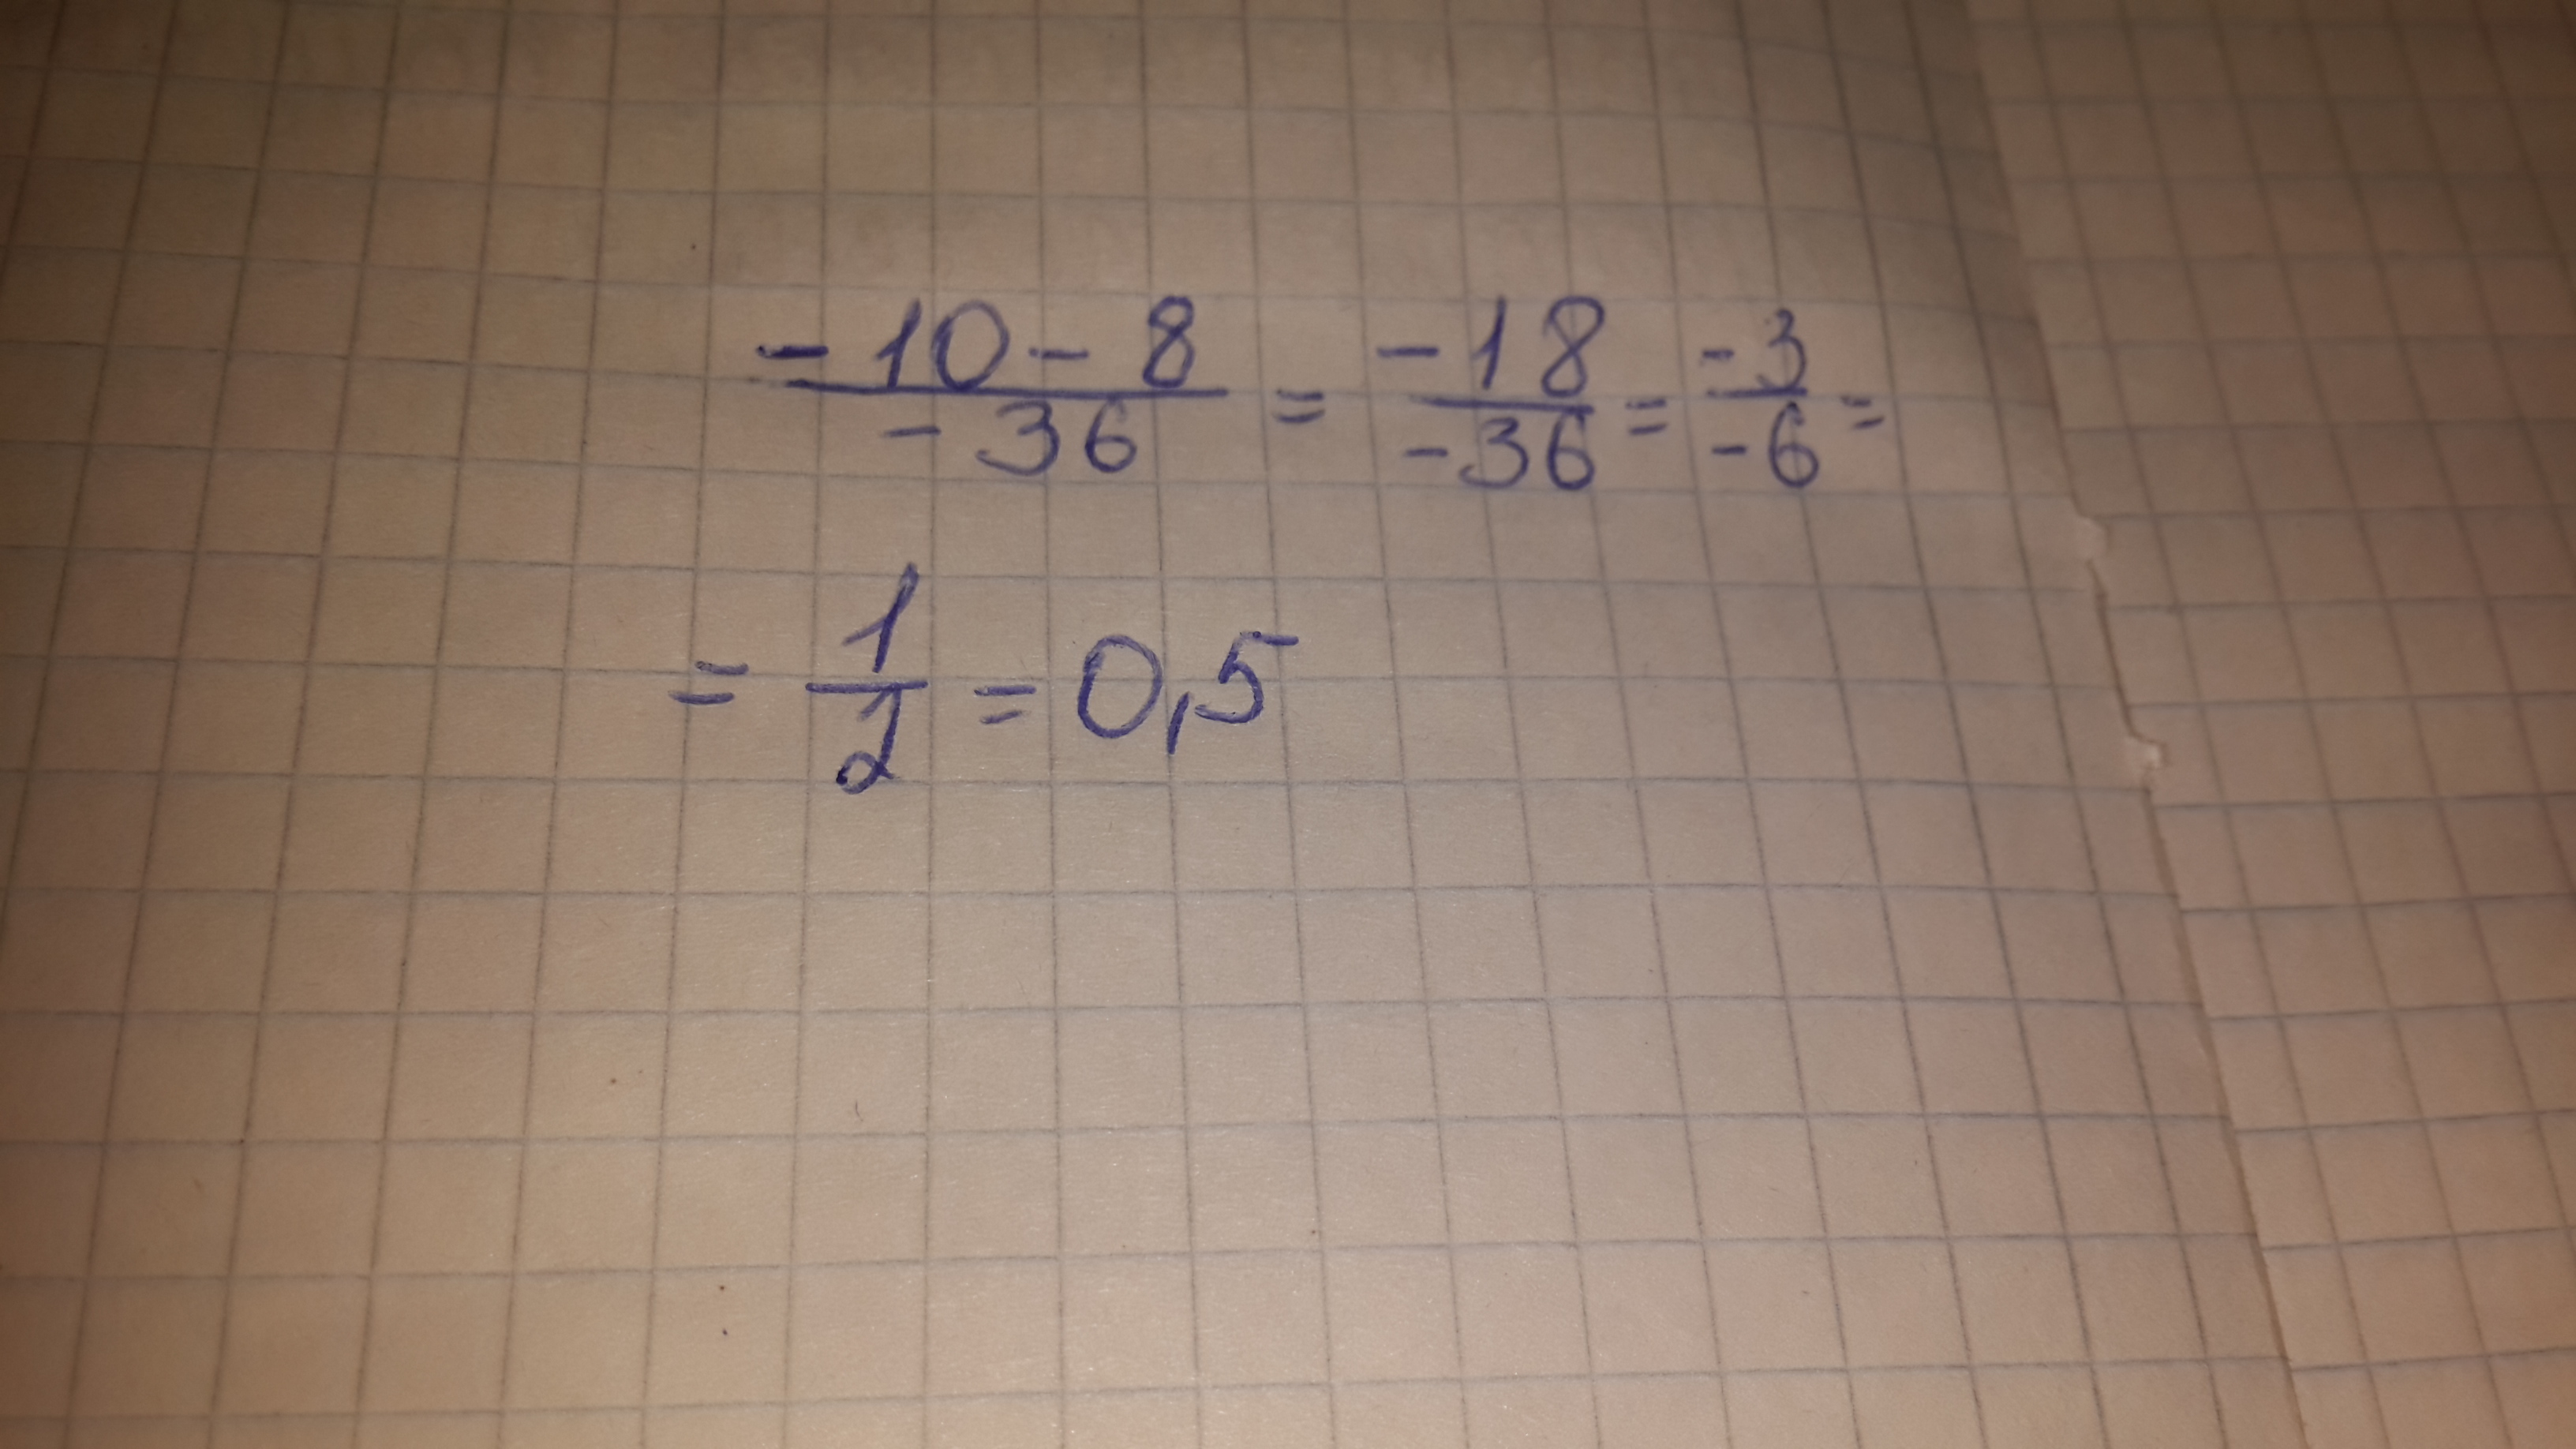 -10-8/-36 = -18/-36 = -3/-6 =
= 1/2 = 0,5